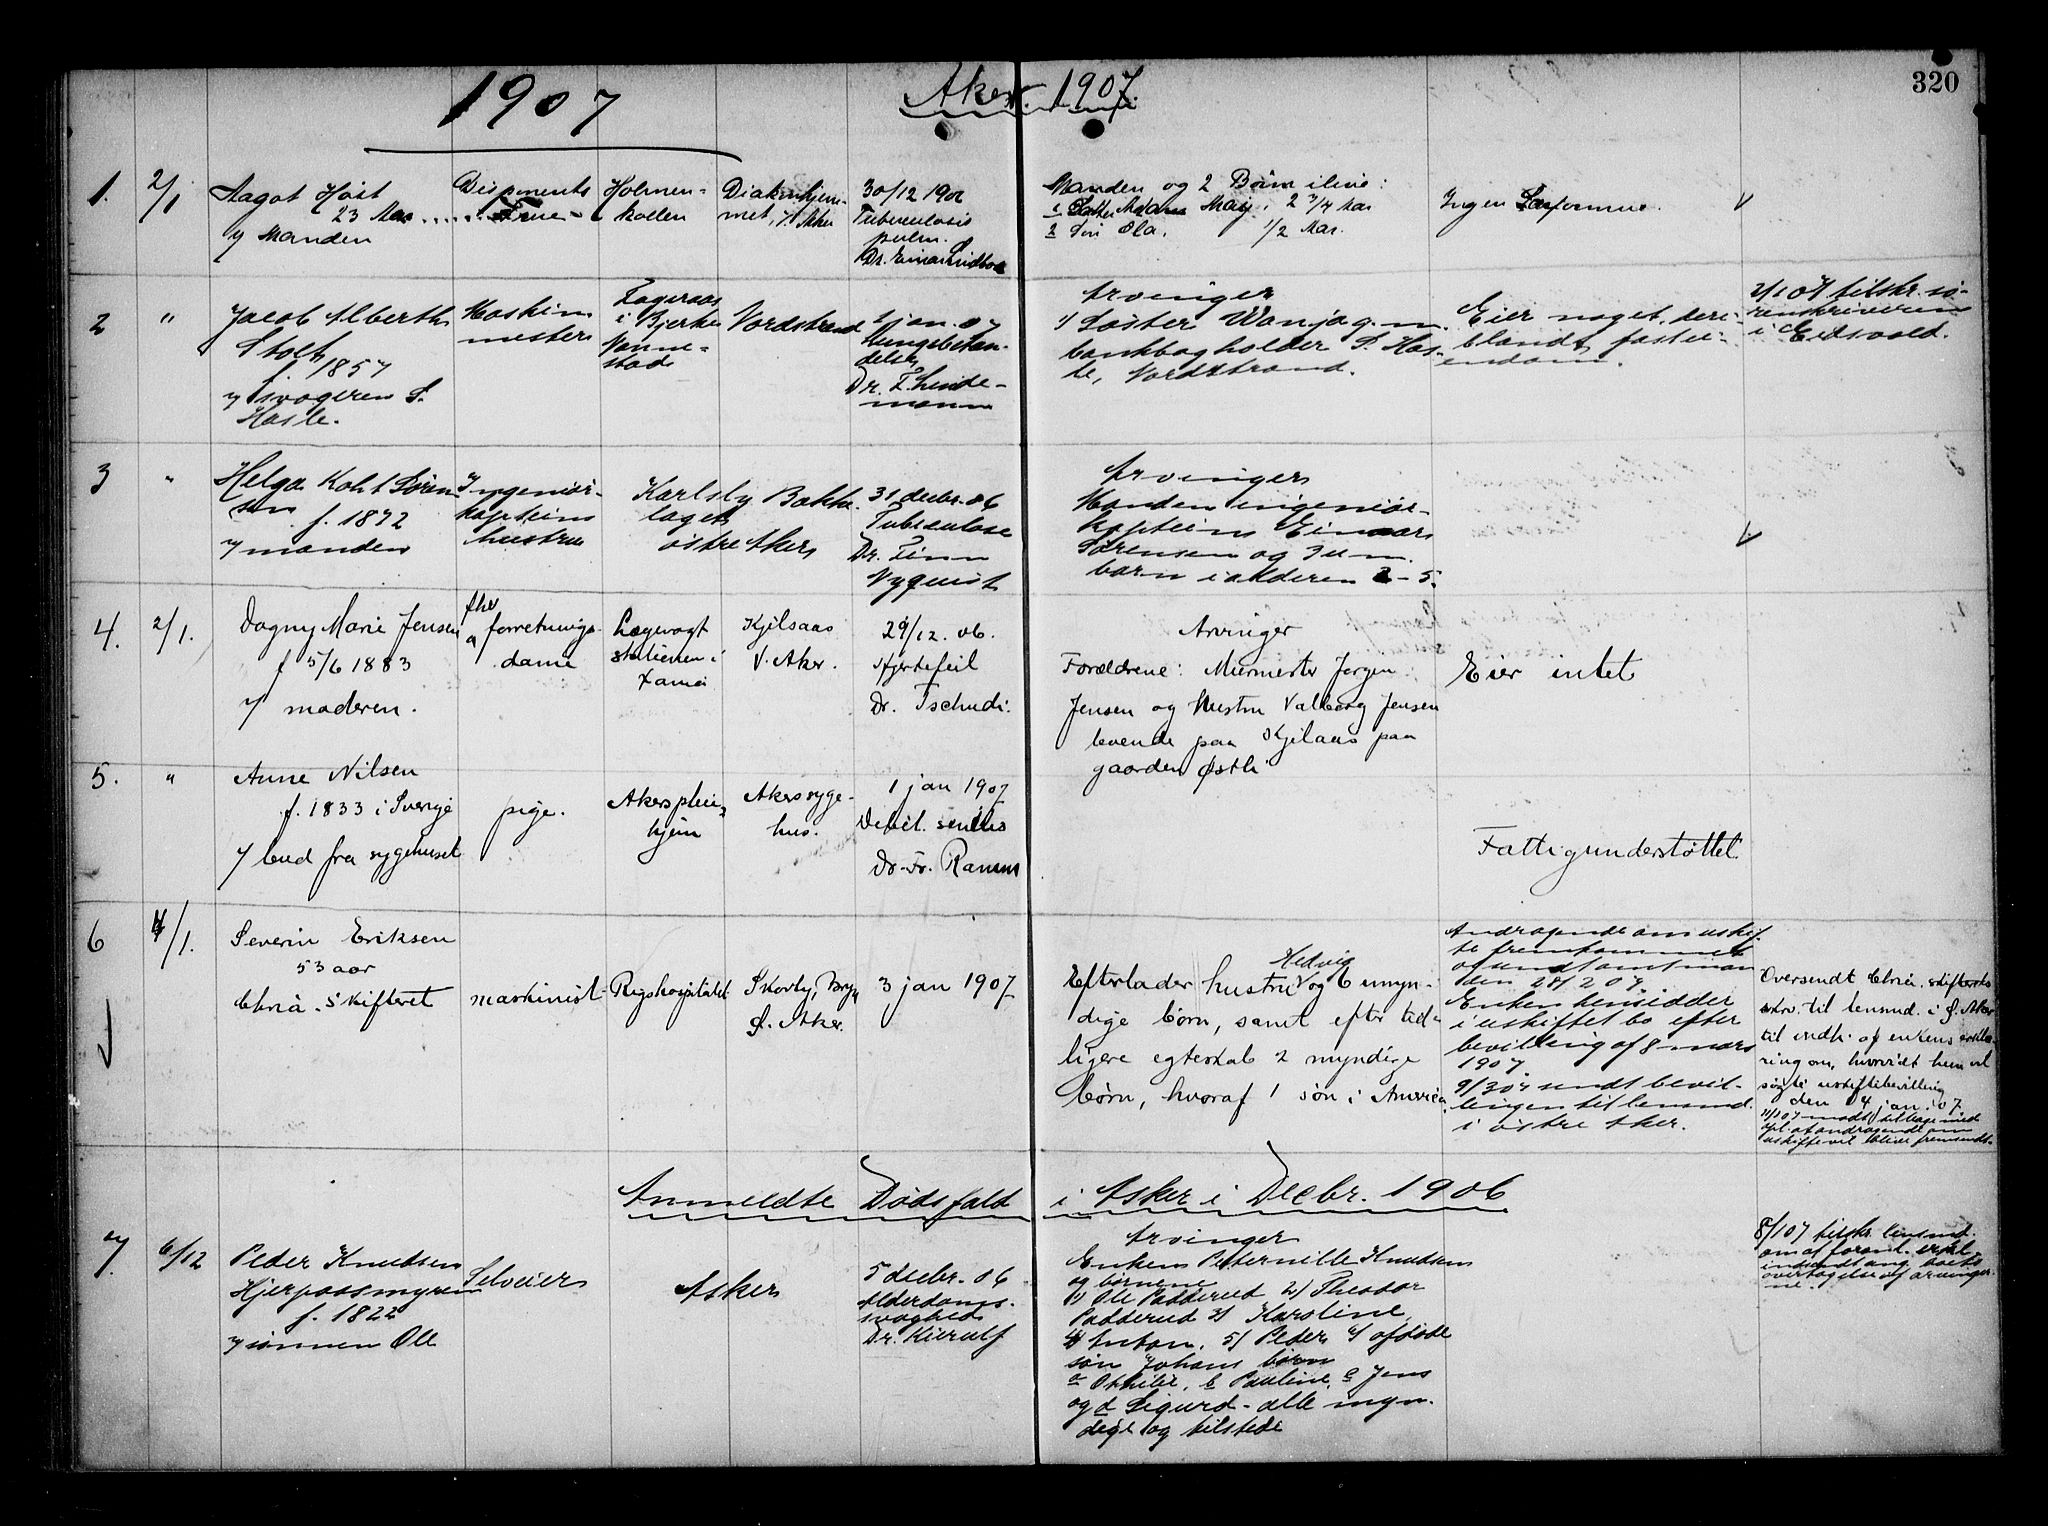 320
1907
Aker. 1907.
1.
2/1
Aagot Høst
23 Aar
v/ Manden
Disponents
Frue
Holmen-
kollen
Diakonhjem-
met, V. Aker
30/12 1906
Tuberculosis
pulm.
Dr. Einar Lindboe
Manden og 2 Børn ilive:
1 Datter Maij. 2 3/4 Aar
2 Søn Ola. 1/2 Aar.
Ingen Særformue.
2
"
Jacob Alberth
Stoltz
f. 1857
v/ svogeren S.
Hasle.
Maskin
mester
Fageraas
i Bjerke
Nanne-
stad
Nordstrand
1 jan. 07
Lungebetæn-
delse
Dr. F. Linde-
mann
Arvinger
1) Søster Wanja g. m.
bankbogholder S. Has-
le, Nordstrand.
Eier noget, deri-
blandt fastei-
endom.
2/1 07 tilskr. so-
renskriveren
i Eidsvold.
3
"
Helga Koht Søren
sen f. 1872
v/ manden
Ingeniør-
kapteins
hustru
Karlsborg Bakke-
laget
østre Aker
31 decbr. 06
Tuberkulose
Dr. Finn
Nyquist
Arvinger
Manden ingeniør-
kaptein Einar
Sørensen og 3 um.
barn i alderen 2-5.
4.
2/1.
Dagny Marie Jensen
f 5/6 1883
v/ moderen.
fhv
forretnings-
dame
Lagevagt
stationen i
Kjelsaas
V. Aker.
29/12. 06.
Hjertefeil
Dr. Tschudi.
Arvinger
Forældrene: Murmester Jørgen
Jensen og Hustru Valborg Jensen
boende paa Kjelsaas paa
gaarden Østli
Eier intet
5.
"
Anne Nilsen
f. 1833 i Sverige
v/ bud fra sygehuset
pige.
Akers pleie-
hjem
Akers syge-
hus.
1 jan 1907
Debil. senilis
Dr. Fr. Ramm
Fattigunderstøttet.
6
4/1.
Severin Eriksen
53 aar
Chria. Skifteret
maskinist
Rigshospitalet
Skovly, Bryn
Ø. Aker.
3 jan 1907
Efterlader hustru Hedvig og 6 umyn-
dige børn, samt efter tid-
ligere egteskab 2 myndige
børn, hvoraf 1 søn i Amerika.
Andragende om uskif-
te fremkommet
og sendt amtman
den 28/2 07.
Enken hensidder
i uskiftet bo efter
bevilling af 8 mars
1907
9/3 07 sendt bevil-
lingen til lensmd.
i østre Aker.
Oversendt Chria. skifterets
skr. til lensmd. i Ø. Aker
til indh. af enkens erklæ-
ring om, hvorvidt hun vil
søge uskiftebevilling
den 4 jan. 07.
11/1 07 modt. tilbage med
opl. at andragende om
uskifte vil blive fremsendt.
Anmeldte Dødsfald i Asker i Decbr. 1906
7.
6/12
Peder Knudsen
Hjerpaasmyren
f. 1822
v/ sønnen Ole
Selveier
Asker
5 decbr. 06
Alderdoms-
svaghed
Dr. Kierulf
Arvinger
Enken Peternille Knudsen
og børnene
1) Ole Padderud 2) Theodor
Padderud 3) Karoline,
4) Anton, 5) Peder 6) afdøde
søn Johans børn
a Othilie, b Pauline, c Jens
og d Sigurd - alle myn-
dige og tilstede
8/1 07 tilskr. lensmd.
om at forand. erkl.
indsendt ang. boets
overtagelse af arvinger-
ne.